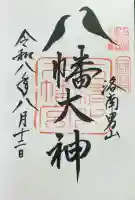 洛南男山
八幡大神
令和八年八月十二日